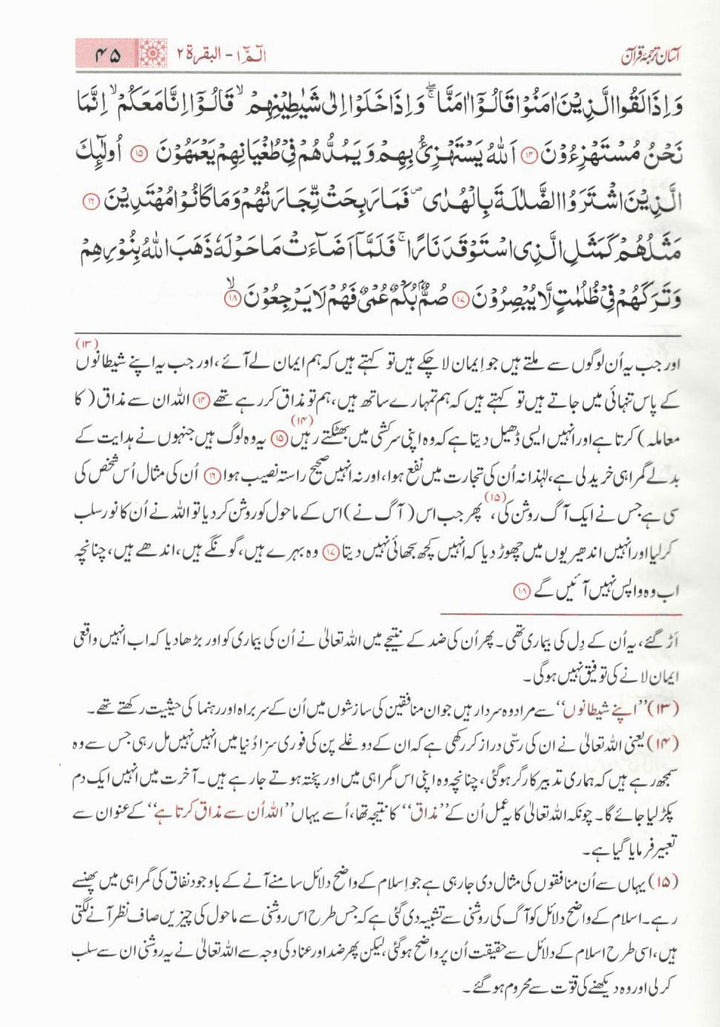 آسان ترجمۂ قرآن
الٓمّٓ ۱ - البقرة ۲
۴۵
وَاِذَا لَقُوا الَّذِيْنَ اٰمَنُوْا قَالُوْٓا اٰمَنَّا ۖۚ وَاِذَا خَلَوْا اِلٰى شَيٰطِيْنِهِمْ ۙ قَالُوْٓا اِنَّا مَعَكُمْ ۙ اِنَّمَا
نَحْنُ مُسْتَهْزِءُوْنَ ۱۴ اَللّٰهُ يَسْتَهْزِئُ بِهِمْ وَيَمُدُّهُمْ فِيْ طُغْيَانِهِمْ يَعْمَهُوْنَ ۱۵ اُولٰٓئِكَ
الَّذِيْنَ اشْتَرَوُا الضَّلٰلَةَ بِالْهُدٰى ۪ فَمَا رَبِحَتْ تِّجَارَتُهُمْ وَمَا كَانُوْا مُهْتَدِيْنَ ۱۶
مَثَلُهُمْ كَمَثَلِ الَّذِى اسْتَوْقَدَ نَارًا ۚ فَلَمَّآ اَضَآءَتْ مَا حَوْلَهٗ ذَهَبَ اللّٰهُ بِنُوْرِهِمْ
وَتَرَكَهُمْ فِيْ ظُلُمٰتٍ لَّا يُبْصِرُوْنَ ۱۷ صُمٌّۢ بُكْمٌ عُمْيٌ فَهُمْ لَا يَرْجِعُوْنَ ۱۸ ۙ
اور جب یہ اُن لوگوں سے ملتے ہیں جو ایمان لا چکے ہیں تو کہتے ہیں کہ ہم ایمان لے آئے، اور جب یہ اپنے شیطانوں (۱۳)
کے پاس تنہائی میں جاتے ہیں تو کہتے ہیں کہ ہم تمہارے ساتھ ہیں، ہم تو مذاق کر رہے تھے ۱۴ اللہ ان سے مذاق (کا
معاملہ) کرتا ہے اور انہیں ایسی ڈھیل دیتا ہے کہ وہ اپنی سرکشی میں بھٹکتے رہیں (۱۴) ۱۵ یہ وہ لوگ ہیں جنہوں نے ہدایت کے
بدلے گمراہی خرید لی ہے، لہٰذا نہ اُن کی تجارت میں نفع ہوا، اور نہ انہیں صحیح راستہ نصیب ہوا ۱۶ اُن کی مثال اُس شخص کی
سی ہے جس نے ایک آگ روشن کی، (۱۵) پھر جب اس (آگ نے) اس کے ماحول کو روشن کر دیا تو اللہ نے اُن کا نور سلب
کر لیا اور انہیں اندھیریوں میں چھوڑ دیا کہ انہیں کچھ سجھائی نہیں دیتا ۱۷ وہ بہرے ہیں، گونگے ہیں، اندھے ہیں، چنانچہ
اب وہ واپس نہیں آئیں گے ۱۸
اَڑ گئے، یہ اُن کے دِل کی بیماری تھی۔ پھر اُن کی ضد کے نتیجے میں اللہ تعالیٰ نے اُن کی بیماری کو اور بڑھا دیا کہ اب انہیں واقعی
ایمان لانے کی توفیق نہیں ہوگی۔
(۱۳) ’’اپنے شیطانوں‘‘ سے مراد وہ سردار ہیں جو ان منافقین کی سازشوں میں اُن کے سربراہ اور رہنما کی حیثیت رکھتے تھے۔
(۱۴) یعنی اللہ تعالیٰ نے ان کی رسّی دراز کر رکھی ہے کہ ان کے دوغلے پن کی فوری سزا دُنیا میں انہیں نہیں مل رہی جس سے وہ
سمجھ رہے ہیں کہ ہماری تدبیر کارگر ہوگئی، چنانچہ وہ اپنی اس گمراہی میں اور پختہ ہوتے جا رہے ہیں۔ آخرت میں انہیں ایک دم
پکڑ لیا جائے گا۔ چونکہ اللہ تعالیٰ کا یہ عمل اُن کے ’’مذاق‘‘ کا نتیجہ تھا، اُسے یہاں ’’اللہ اُن سے مذاق کرتا ہے‘‘ کے عنوان سے
تعبیر فرمایا گیا ہے۔
(۱۵) یہاں سے اُن منافقوں کی مثال دی جا رہی ہے جو اِسلام کے واضح دلائل سامنے آنے کے باوجود نفاق کی گمراہی میں پھنسے
رہے۔ اسلام کے واضح دلائل کو آگ کی روشنی سے تشبیہ دی گئی ہے کہ جس طرح اس روشنی سے ماحول کی چیزیں صاف نظر آنے لگتی
ہیں، اسی طرح اسلام کے دلائل سے حقیقت اُن پر واضح ہوگئی، لیکن پھر ضد اور عناد کی وجہ سے اللہ تعالیٰ نے یہ روشنی ان سے سلب
کر لی اور وہ دیکھنے کی قوّت سے محروم ہو گئے۔